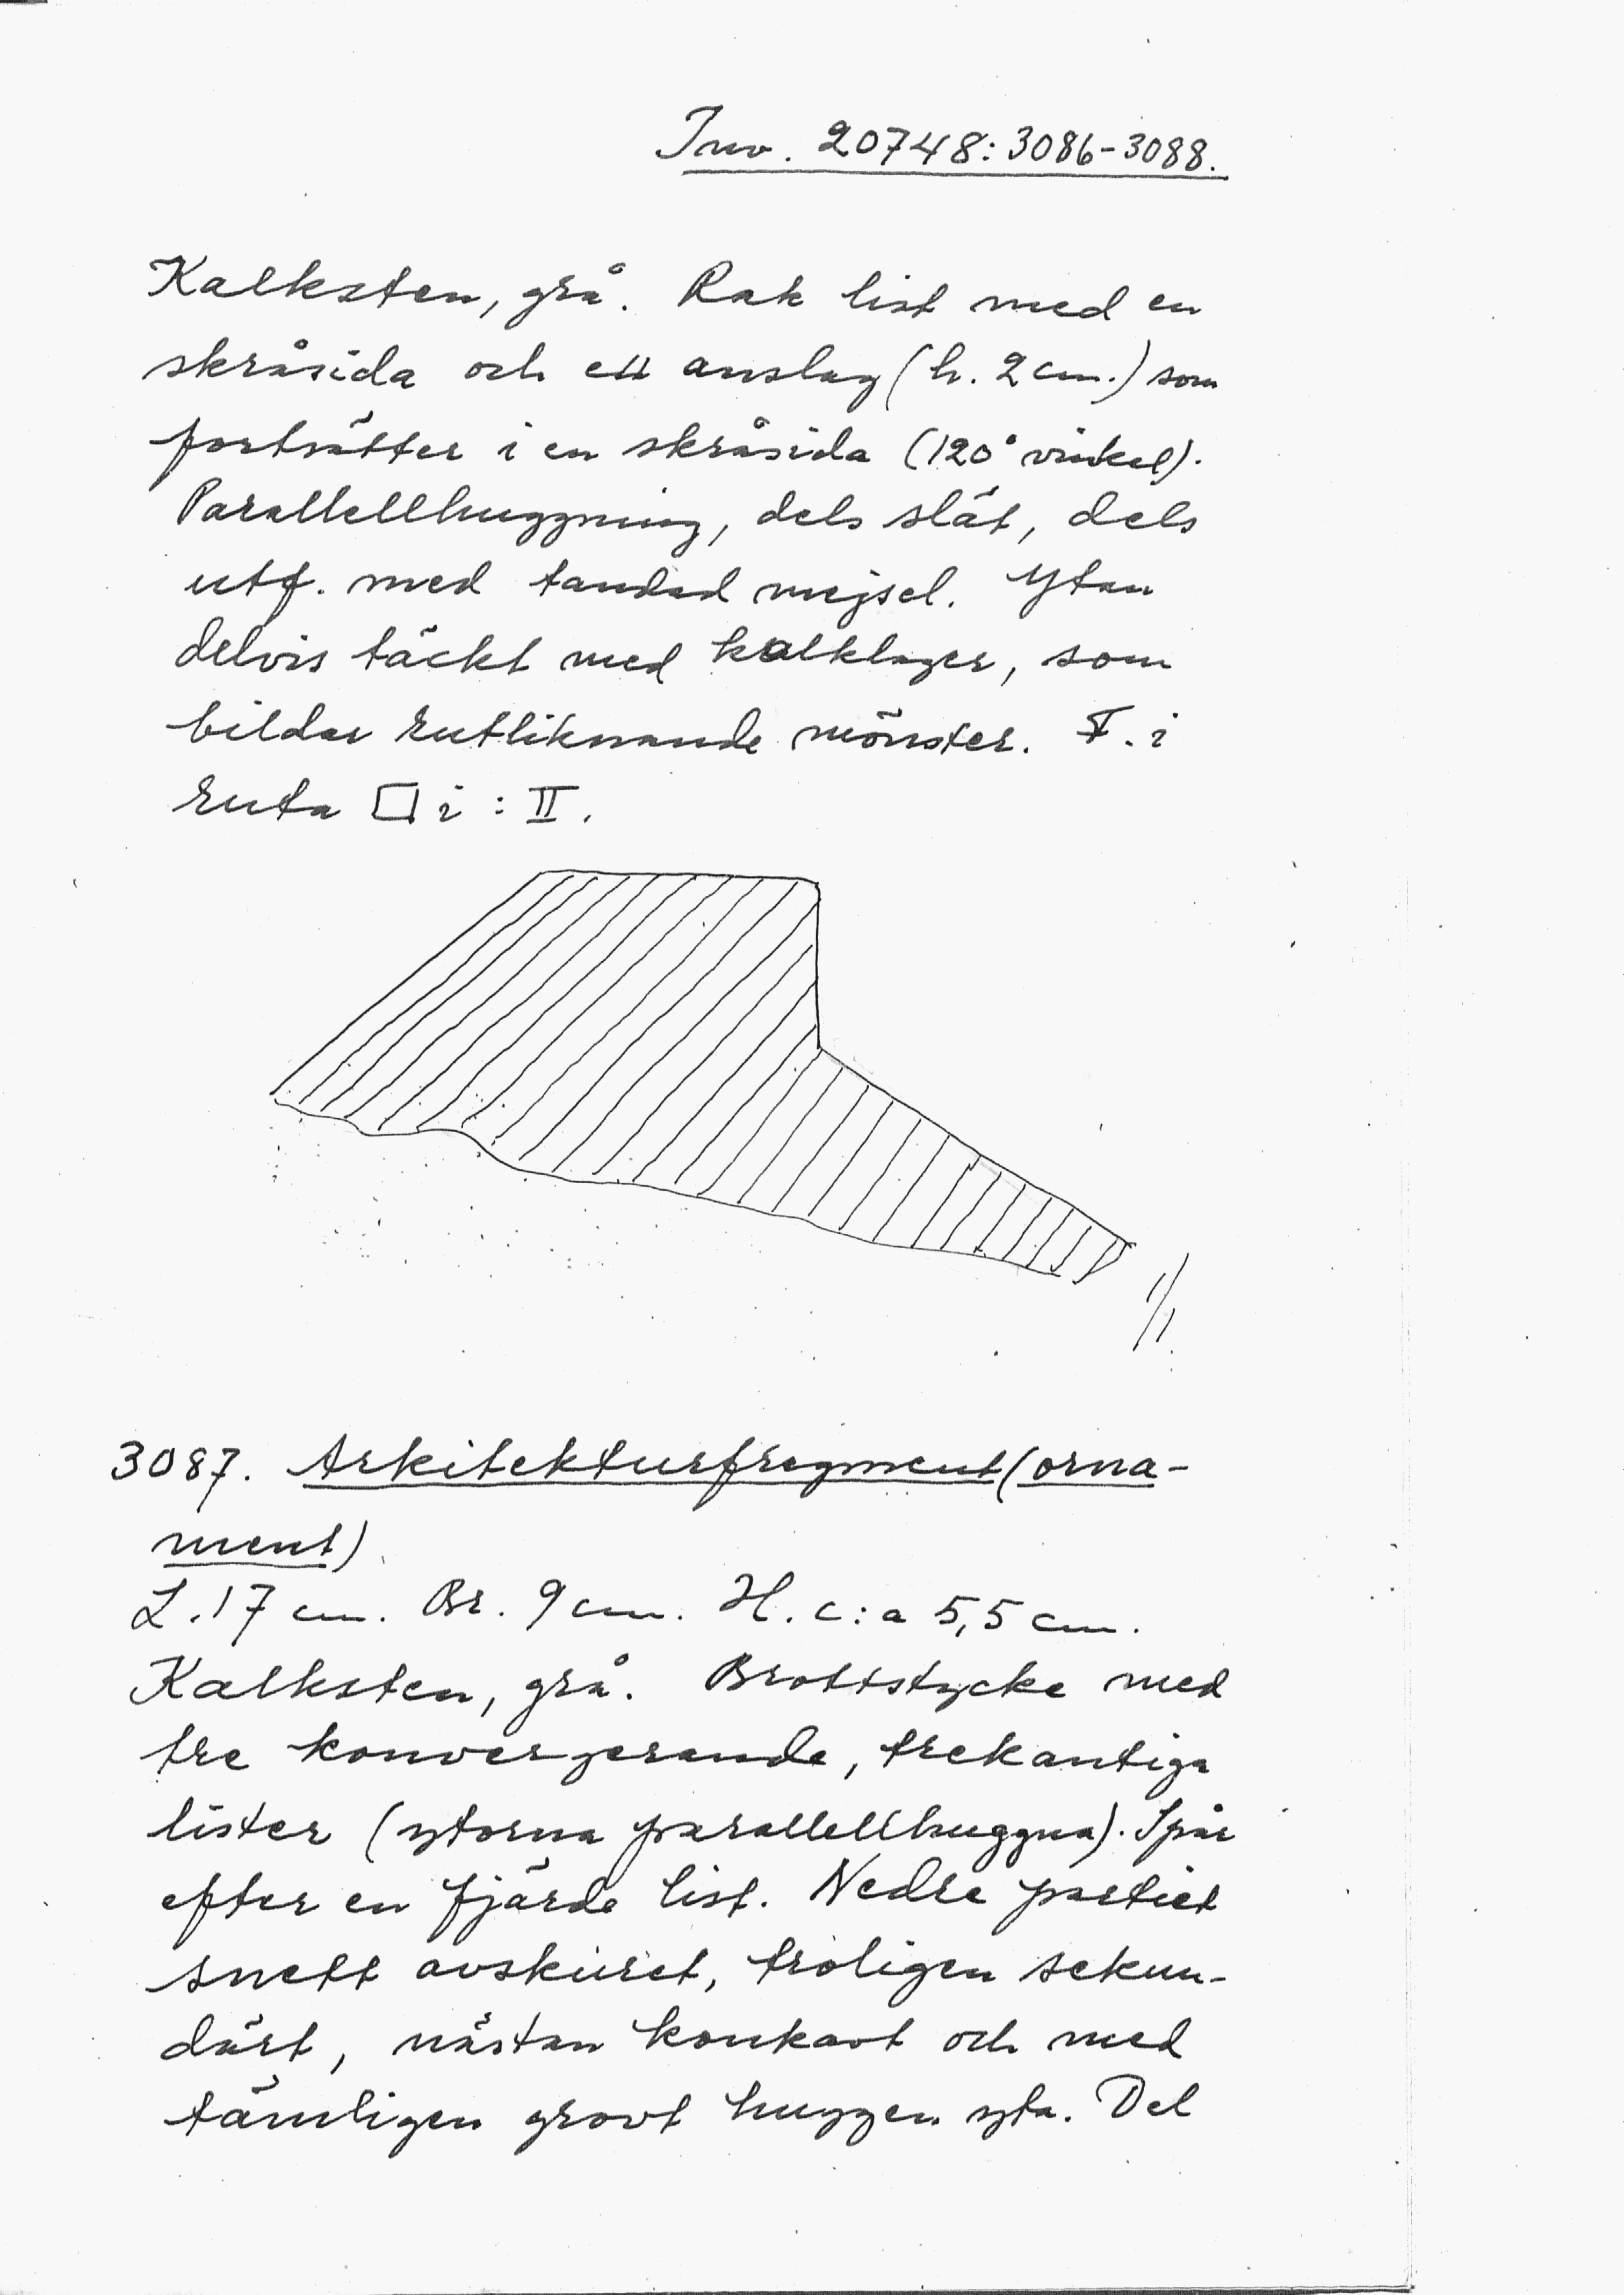 Inv. 20748: 3086-3088.
Kalksten, grå. Rak list med en
skråsida och ett anslag (h. 2 cm.) som
fortsätter i en skråsida (120° vinkel).
Parallellhuggning, dels slät, dels
utf. med tandad mejsel. Ytan
delvis täckt med kalklager, som
bildar rutliknande mönster. F. i
ruta □ i : II.
1/1
3087. Arkitekturfragment (orna-
ment)
L. 17 cm. Br. 9 cm. H. c:a 5,5 cm.
Kalksten, grå. Brottstycke med
tre konvergerande, trekantiga
lister (ytorna parallellhuggna). Spår
efter en fjärde list. Nedre partiet
snett avskuret, troligen sekun-
därt, nästan konkavt och med
tämligen grovt huggen yta. Del